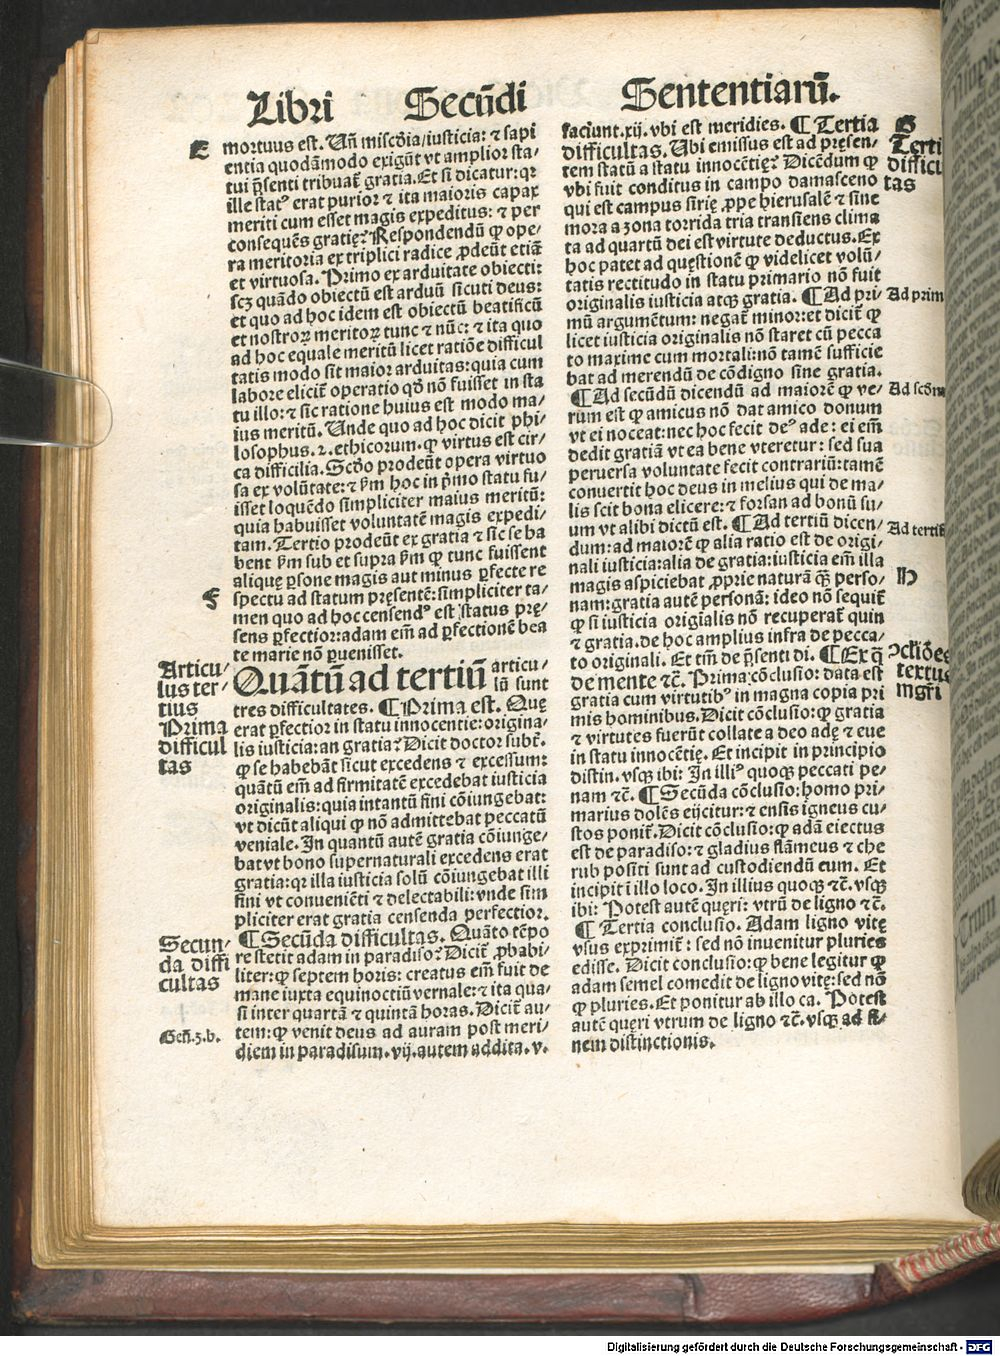 Libri Secūdi Sententiarū.
E
mortuus est. Uñ miscd̄ia/iusticia: ⁊ sapi
entia quodāmodo exigūt vt amplior sta⸗
tui p̄senti tribuat̄ gratia. Et si dicatur: qꝛ
ille statꝰ erat purior ⁊ ita maioris capax
meriti cum esset magis expeditus: ⁊ per
consequēs gratię? Respondendū ꝙ ope⸗
ra meritoria ex triplici radice ꝓdeūt etiā
et virtuosa. Primo ex arduitate obiecti:
scꝫ quādo obiectū est arduū sicuti deus:
et quo ad hoc idem est obiectū beatificū
et nostroꝝ meritoꝝ tunc ⁊ nūc: ⁊ ita quo
ad hoc equale meritū licet ratiōe difficul
tatis modo sit maior arduitas: quia cum
labore elicit̄ operatio qđ nō fuisset in sta
tu illo: ⁊ sic ratione huius est modo ma⸗
ius meritū. Unde quo ad hoc dicit phi⸗
losophus. 2. ethicorum. ꝙ virtus est cir⸗
ca difficilia. Scđo prodeūt opera virtuo
sa ex volūtate: ⁊ ẜm hoc in p̄mo statu fu⸗
isset loquēdo simpliciter maius meritū:
quia habuisset voluntatē magis expedi⸗
tam. Tertio prodeūt ex gratia ⁊ sic se ha
bent ẜm sub et supra ẜm ꝙ tunc fuissent
F
alique ꝑsone magis aut minus ꝑfecte re
spectu ad statum pręsentē: simpliciter ta⸗
men quo ad hoc censendꝰ est status pre⸗
sens ꝑfectior: adam em̄ ad ꝑfectionē bea
te marie nō ꝑuenisset.
Articu⸗
lus ter⸗
tius
Prima
difficul
tas
Quātū ad tertiū articu⸗
lū sunt
tres difficultates. ¶ Prima est. Quę
erat ꝑfectior in statu innocentie: origina⸗
lis iusticia: an gratia? Dicit doctor subt̄.
ꝙ se habebāt sicut excedens ⁊ excessum:
quātū em̄ ad firmitatē excedebat iusticia
originalis: quia intantū fini cōiungebat:
vt dicūt aliqui ꝙ nō admittebat peccatū
veniale. In quantū autē gratia cōiunge⸗
bat vt bono supernaturali excedens erat
gratia: qꝛ illa iusticia solū cōiungebat illi
fini vt conueniēti ⁊ delectabili: vnde sim
pliciter erat gratia censenda perfectior.
Secun⸗
da diffi
cultas
¶ Secūda difficultas. Quāto tēpo
re stetit adam in paradiso? Dicit̄ ꝓbabi⸗
liter: ꝙ septem horis: creatus em̄ fuit de
mane iuxta equinoctiū vernale: ⁊ ita qua⸗
si inter quartā ⁊ quintā horas. Dicit̄ au⸗
Geñ. 3. b.
tem: ꝙ venit deus ad auram post meri⸗
diem in paradisum. vij. autem addita. v.
faciunt. xij. vbi est meridies. ¶ Tertia
difficultas. Ubi emissus est ad pręsen⸗
tem statū a statu innocētię? Dicēdum ꝙ
vbi fuit conditus in campo damasceno
qui est campus sirię ꝓpe hierusalē ⁊ sine
mora a zona torrida tria transiens clima
ta ad quartū dei est virtute deductus. Ex
hoc patet ad quęstionē ꝙ videlicet volū⸗
tatis rectitudo in statu primario nō fuit
originalis iusticia atqꝫ gratia. ¶ Ad pri⸗
mū argumētum: negat̄ minor: et dicit̄ ꝙ
licet iusticia originalis nō staret cū pecca
to maxime cum mortali: nō tamē sufficie
bat ad merendū de cōdigno sine gratia.
¶ Ad secūdū dicendū ad maiorē ꝙ ve⸗
rum est ꝙ amicus nō dat amico donum
vt ei noceat: nec hoc fecit deꝰ ade: ei em̄
dedit gratiā vt ea bene vteretur: sed sua
peruersa voluntate fecit contrariū: tamē
conuertit hoc deus in melius qui de ma⸗
lis scit bona elicere: ⁊ forsan ad bonū su⸗
um vt alibi dictū est. ¶ Ad tertiū dicen⸗
dum: ad maiorē ꝙ alia ratio est de origi⸗
nali iusticia: alia de gratia: iusticia em̄ illa
magis aspiciebat ꝓprie naturā qꝫ̄ perso⸗
nam: gratia autē personā: ideo nō sequit̄
ꝙ si iusticia origīalis nō recuperat̄ quin
⁊ gratia. de hoc amplius infra de pecca⸗
to originali. Et tm̄ de p̄senti di. ¶ Ex q̄
de mente ⁊c̄. Prima cōclusio: data est
gratia cum virtutibꝰ in magna copia pri
mis hominibus. Dicit cōclusio: ꝙ gratia
⁊ virtutes fuerūt collate a deo adę ⁊ eue
in statu innocētię. Et incipit in principio
distin. vsqꝫ ibi: In illiꝰ quoqꝫ peccati pe⸗
nam ⁊c̄. ¶ Secūda cōclusio: homo pri⸗
marius dolēs eijcitur: ⁊ ensis igneus cu⸗
stos ponit̄. Dicit cōclusio: ꝙ adā eiectus
est de paradiso: ⁊ gladius flāmeus ⁊ che
rub positi sunt ad custodiendū eum. Et
incipit ī illo loco. In illius quoqꝫ ⁊c̄. vsqꝫ
ibi: Potest autē quęri: vtrū de ligno ⁊c̄.
¶ Tertia conclusio. Adam ligno vitę
vsus exprimit̄: sed nō inuenitur pluries
edisse. Dicit conclusio: ꝙ bene legitur ꝙ
adam semel comedit de ligno vitę: sed nō
ꝙ pluries. Et ponitur ab illo ca. Potest
autē quęri vtrum de ligno ⁊c̄. vsqꝫ ad fi⸗
nem distinctionis.
G
Terti
difficul
tas
Ad prim
Ad scđm
Ad tertiū
H
ↄcliōes
textus
mgr̄i
Digitalisierung gefördert durch die Deutsche Forschungsgemeinschaft - DFG